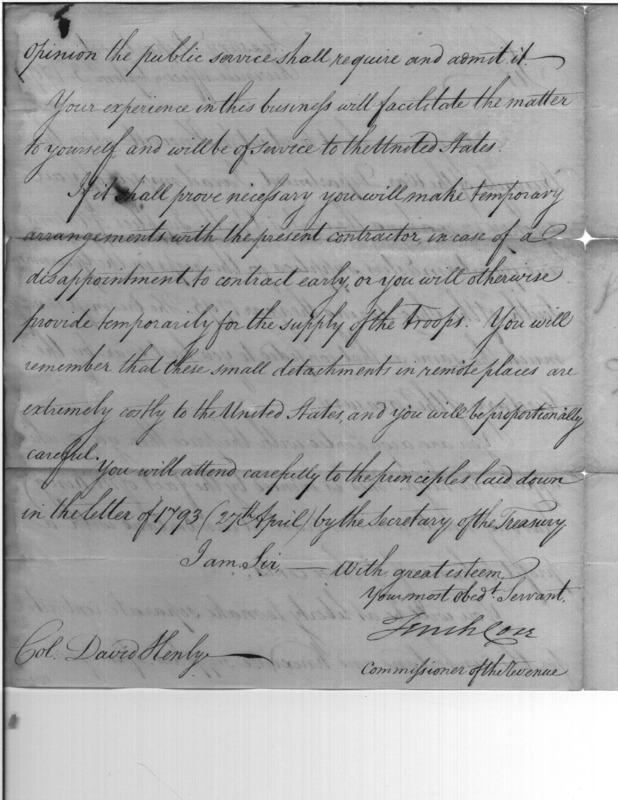 opinion the public service shall require and admit it.
Your experience in this business will facilitate the matter
to yourself and will be of service to the United States.
If it shall prove necessary you will make temporary
arrangements with the present contractor, in case of a
disappointment to contract early, or you will otherwise
provide temporarily for the supply of the Troops. You will
remember that these small detachments in remote places are
extremely costly to the United States, and you will be proportionally
careful.
You will attend carefully to the principles laid down
in the letter of 1793 (27th April) by the Secretary of the Treasury.
I am Sir, — With great esteem
Your most Obedt. Servant.
Tench Coxe
Commissioner of the Revenue
Col. David Henly